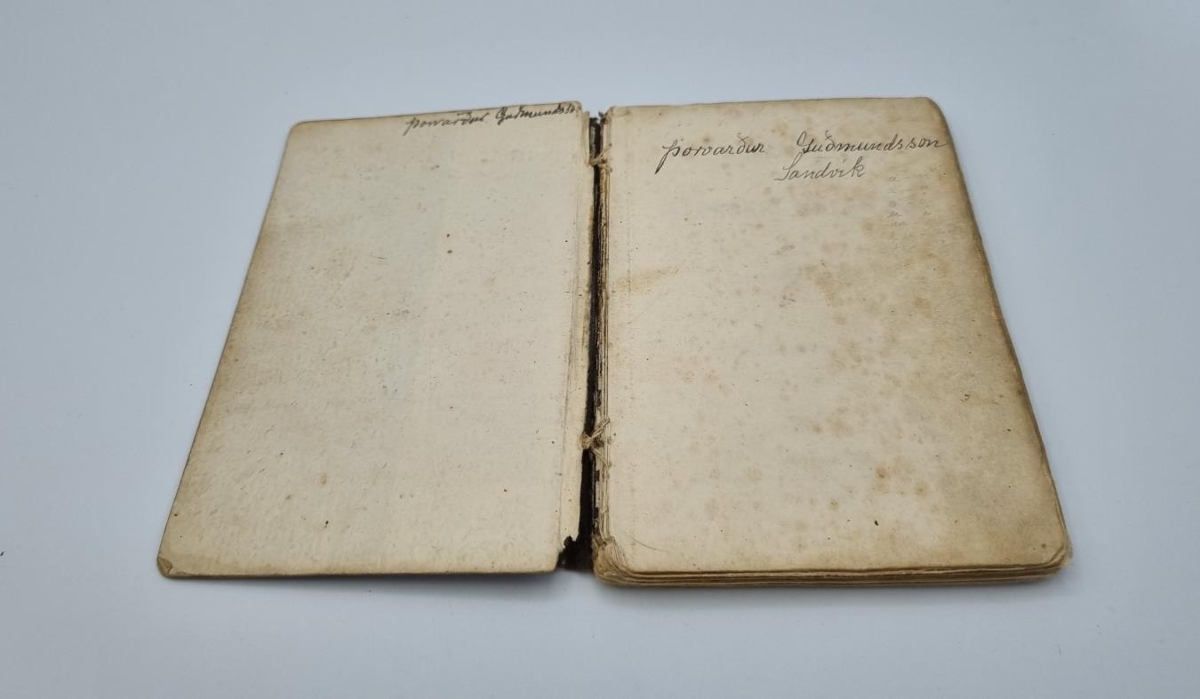 Þorvarður Guðmundsson
Þorvarður Guðmundsson
Sandvík